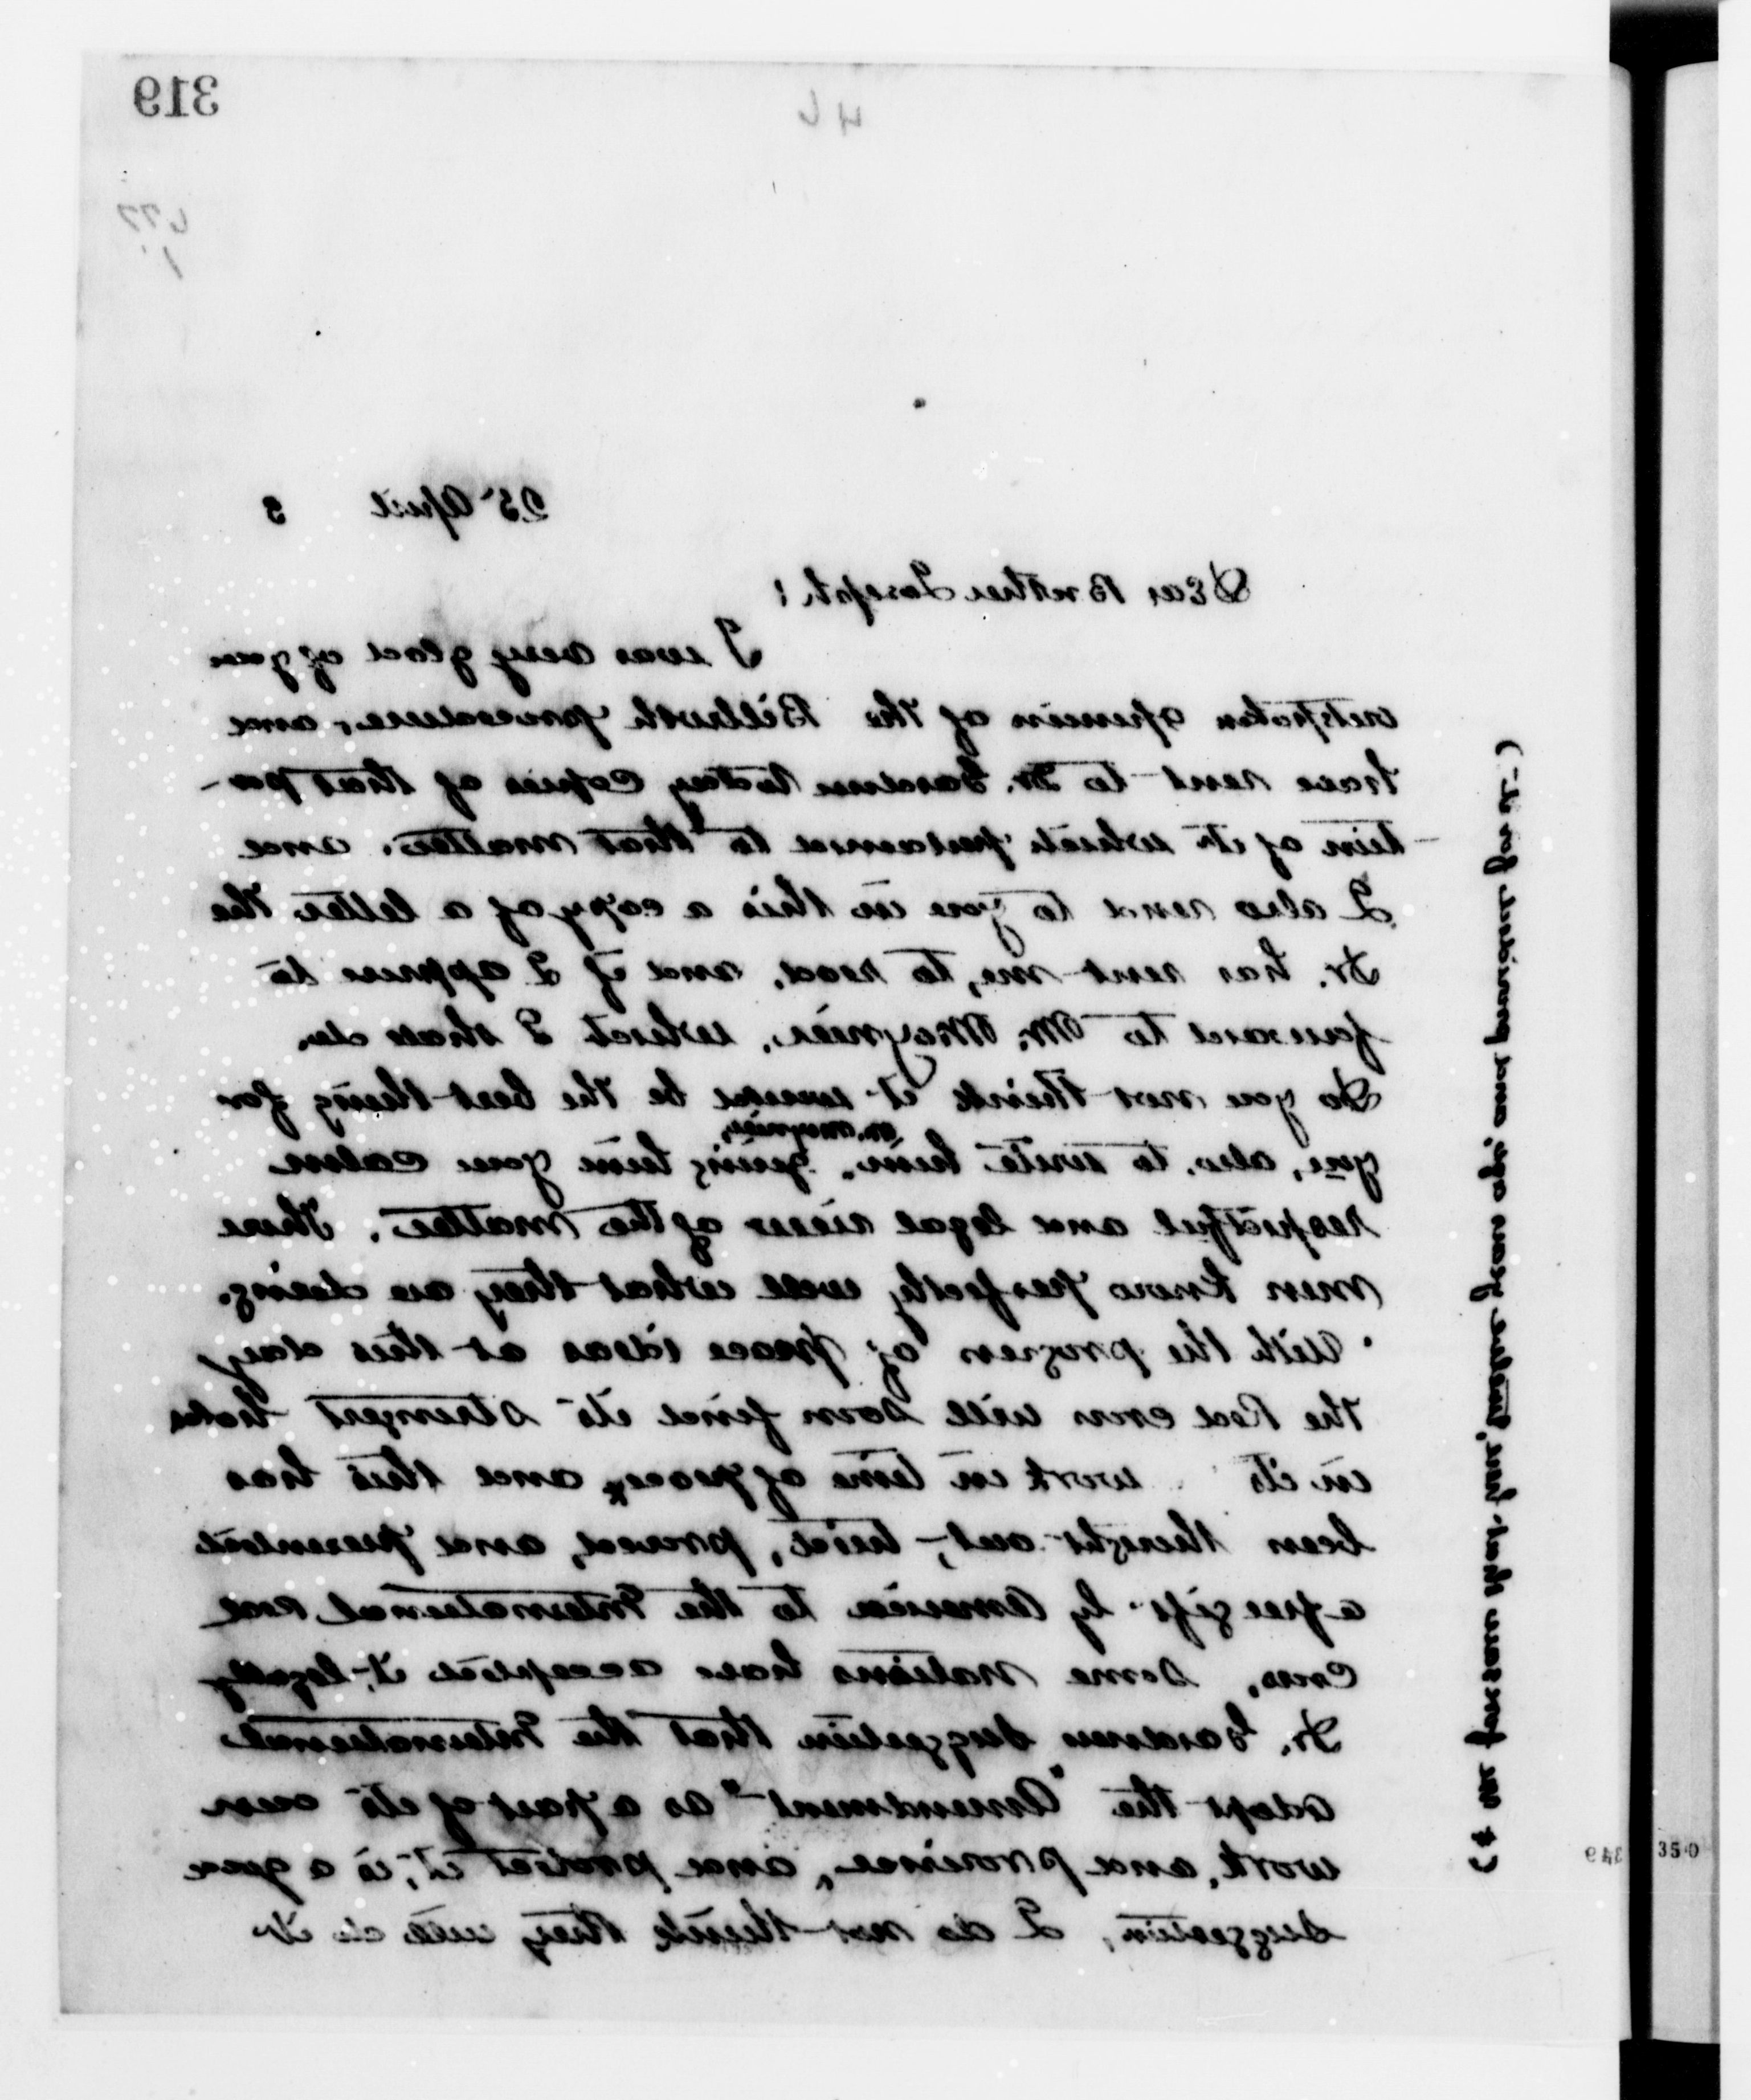 319
46
677
1
25 April 3
Dear Brother Joseph:
I was very glad of your
outspoken opinion of the Billroth procedure, and
have sent to Dr. Gardner today copies of that por-
tion of it which pertained to that matter. and
I also send to you in this a copy of a letter the
Dr. has sent me, to read, and if I approve to
forward to Mr. Moynier, which I shall do.
Do you not think it would be the best thing for
you, also, to write him, giving him your calm
Mr. Moynier,
respectful and legal view of the matter. These
men know perfectly well what they are doing.
With the progress of peace ideas at this day
the Red Cross will soon find its strongest holds
in its work in time of peace, and this has
been thought out, tried, proved, and presented
a free gift by America to the International Red
Cross, Some nations have accepted it legally
Dr. Gardner suggestion that the International
adopt the "Amendment" as a part of its own
work, and province, and protect it, is a good
suggestion, I do not think they will do it
(& we foresaw that fear, twelve years ago, and provided for it-)
349
350